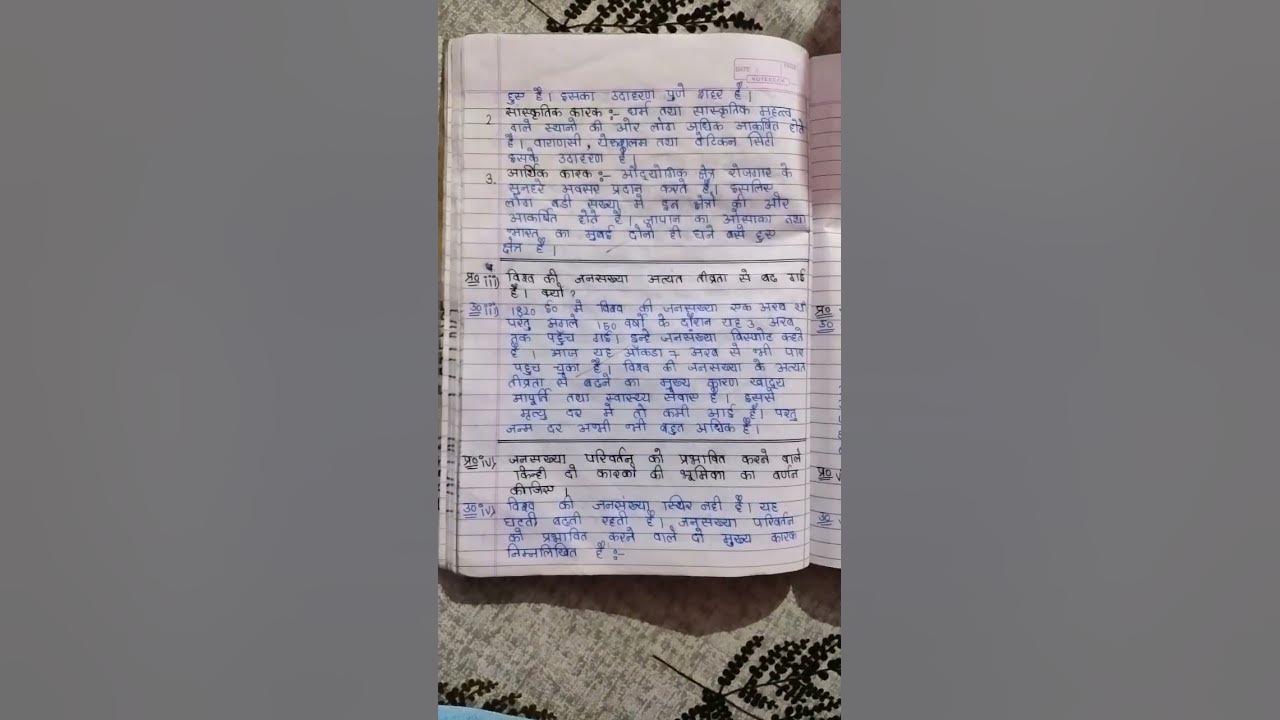 DATE
NOTEBOOK
हुए है। इसका उदाहरण पुणे शहर है।
2 सास्कृतिक कारक :- धर्म तथा सास्कृतिक महत्त्व
वाले स्थानो की ओर लोग अधिक आकर्षित होते
है। वाराणसी, येरुशलम तथा वेटिकन सिटी
इसके उदाहरण है।
3. आर्थिक कारक :- औद्योगिक क्षेत्र रोजगार के
सुनहरे अवसर प्रदान करते है। इसलिए
लोग बडी सख्या मे इन क्षेत्रो की ओर
आकर्षित होते है। जापान का ओसाका तथा
भारत का मुंबई दोनो ही घने बसे हुए
क्षेत्र है।
प्र० iii) विश्व की जनसख्या अत्यंत तीव्रता से बढ गई
है। क्यो?
उ० iii) 1820 ई० मे विश्व की जनसख्या एक अरब थी
परंतु अगले 150 वर्षो के दौरान यह 3 अरब
तक पहुँच गई। इन्हे जनसंख्या विस्फोट कहते
है। आज यह आँकडा 7 अरब से भी पार
पहुच चुका है। विश्व की जनसख्या के अत्यंत
तीव्रता से बढने का मुख्य कारण खाद्य
आपूर्ति तथा स्वास्थ्य सेवाए है। इससे
मृत्यु दर मे तो कमी आई है। परंतु
जन्म दर अभी भी बहुत अधिक है।
प्र० iv) जनसख्या परिवर्तन को प्रभावित करने वाले
किन्ही दो कारको की भूमिका का वर्णन
कीजिए।
उ० iv) विश्व की जनसंख्या स्थिर नही है। यह
घटती बढती रहती है। जनसख्या परिवर्तन
को प्रभावित करने वाले दो मुख्य कारक
निम्नलिखित है :-
प्र०
उ०
प्र०
उ०